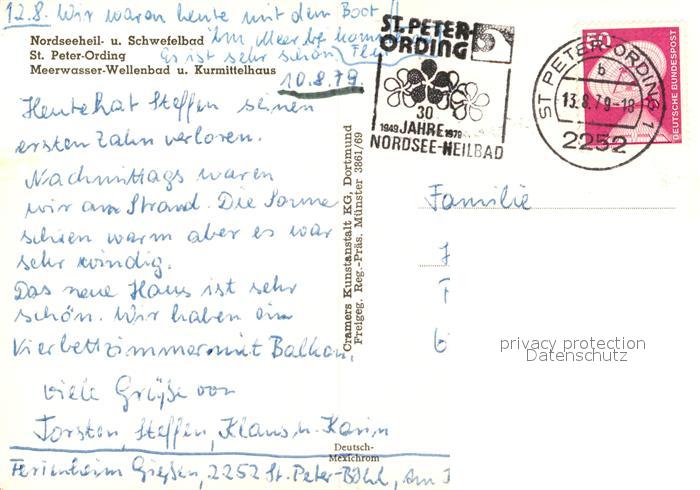 12.8. Wir waren heute mit dem Boot
im Meer
Es ist sehr schön
Nordseeheil- u. Schwefelbad
St. Peter-Ording
Meerwasser-Wellenbad u. Kurmittelhaus
10.8.79.
Heute hat Steffen seinen
ersten Zahn verloren.
Nachmittags waren
wir am Strand. Die Sonne
schien warm aber es war
sehr windig.
Das neue Haus ist sehr
schön. Wir haben ein
Vierbettzimmer mit Balkon.
viele Grüße von
Torsten, Steffen, Klaus u. Karin
Ferienheim Gießen, 2252 St. Peter-Böhl, Am
Deutsch-
Mexichrom
Cramers Kunstanstalt KG, Dortmund
Freigeg. Reg.-Präs. Münster 3861/69
ST. PETER-
ORDING
30
1949 JAHRE 1979
NORDSEE-HEILBAD
50
DEUTSCHE BUNDESPOST
ST PETER-ORDING 1
b
13.8.79-18
2252
Familie
privacy protection
Datenschutz